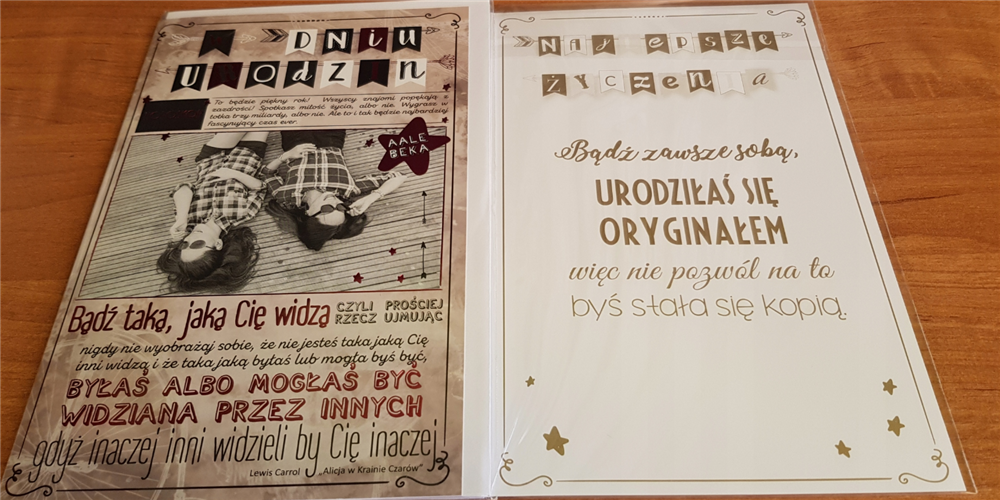 W DNIU
URODZIN
To będzie piękny rok! Wszyscy znajomi popękają z
zazdrości! Spotkasz miłość życia, albo nie. Wygrasz w
totka trzy miliardy, albo nie. Ale to i tak będzie najbardziej
fascynujący czas ever.
AALE
BEKA
Bądź taką, jaką Cię widzą
CZYLI PROŚCIEJ
RZECZ UJMUJĄC
nigdy nie wyobrażaj sobie, że nie jesteś taką jaką Cię
inni widzą i że taka jaką byłaś lub mogła byś być,
BYŁAŚ ALBO MOGŁAŚ BYĆ
WIDZIANA PRZEZ INNYCH
gdyż inaczej inni widzieli by Cię inaczej
Lewis Carrol „Alicja w Krainie Czarów"
NAJLEPSZE
ŻYCZENIA
Bądź zawsze sobą,
URODZIŁAŚ SIĘ
ORYGINAŁEM
więc nie pozwól na to
byś stała się kopią.